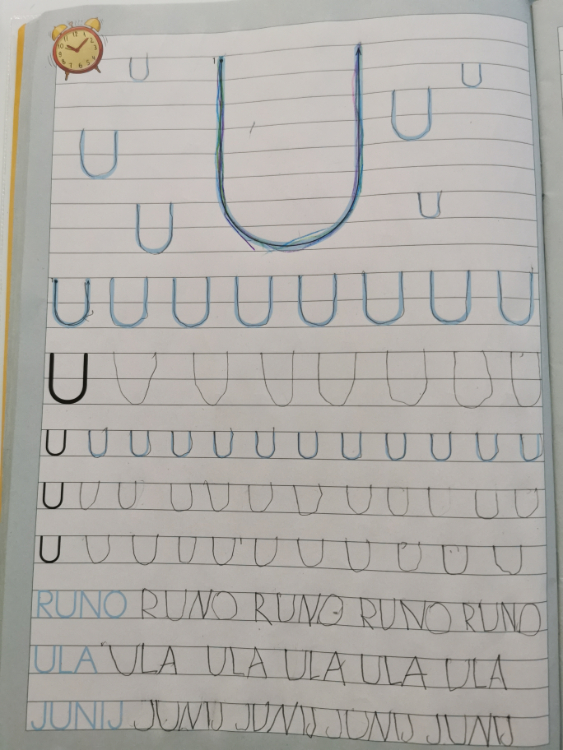 U U U
U U
U U
U U U U U U U U
U U U U U U U U
U U U U U U U U U U U U
U U U U U U U U U U U U
U U U U U U U U U U U
RUNO RUNO RUNO RUNO RUNO
ULA ULA ULA ULA ULA ULA
JUNIJ JUNIJ JUNIJ JUNIJ JUNIJ